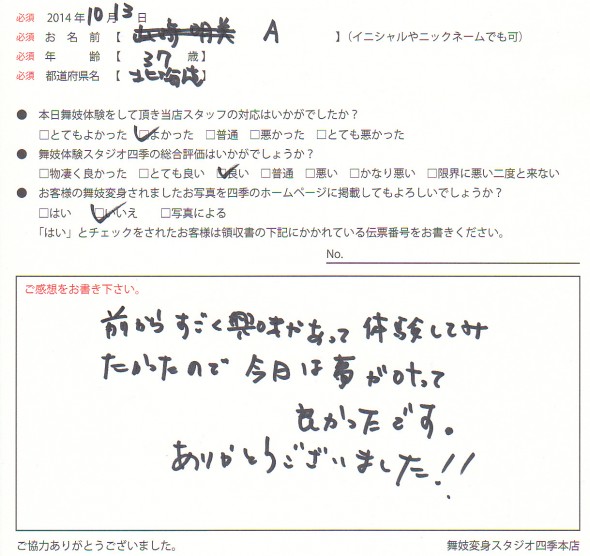 必須 2014年10月13日
必須 お名前【 A 】(イニシャルやニックネームでも可)
必須 年齢【 37 歳】
必須 都道府県名【 北海道 】
● 本日舞妓体験をして頂き当店スタッフの対応はいかがでしたか？
□とてもよかった ☑よかった □普通 □悪かった □とても悪かった
● 舞妓体験スタジオ四季の総合評価はいかがでしょうか？
□物凄く良かった □とても良い ☑良い □普通 □悪い □かなり悪い □限界に悪い二度と来ない
● お客様の舞妓変身されましたお写真を四季のホームページに掲載してもよろしいでしょうか？
□はい ☑いいえ □写真による
「はい」とチェックをされたお客様は領収書の下記にかかれている伝票番号をお書きください。
No.
ご感想をお書き下さい。
前からすごく興味があって体験してみ
たかったので今日は夢が叶って
良かったです。
ありがとうございました!!
ご協力ありがとうございました。
舞妓変身スタジオ四季本店